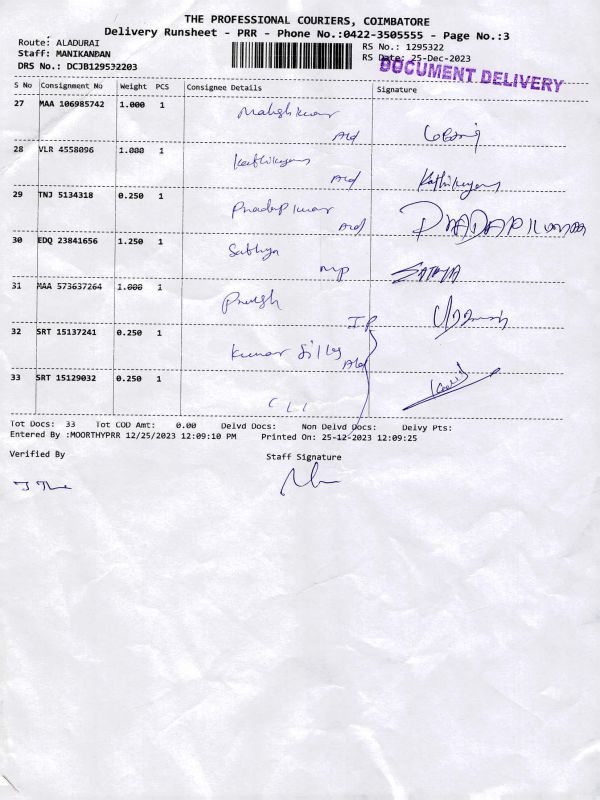 THE PROFESSIONAL COURIERS, COIMBATORE
Delivery Runsheet - PRR - Phone No.:0422-3505555 - Page No.:3
Route: ALADURAI
RS No.: 1295322
Staff: MANIKANDAN
RS Date: 25-Dec-2023
DRS No.: DCJB129532203
DOCUMENT DELIVERY
S No Consignment No Weight PCS Consignee Details Signature
27 MAA 106985742 1.000 1 Mahesh kumar
Ald
28 VLR 4558096 1.000 1 Karthikeyan Kathikeyan
Ald
29 TNJ 5134318 0.250 1 Pradeep kumar
Ald
30 EDQ 23841656 1.250 1 Sathya SATHYA
mp
31 MAA 573637264 1.000 1
I.P
32 SRT 15137241 0.250 1 Kumar Silks
Ald
33 SRT 15129032 0.250 1
Tot Docs: 33 Tot COD Amt: 0.00 Delvd Docs: Non Delvd Docs: Delvy Pts:
Entered By :MOORTHYPRR 12/25/2023 12:09:10 PM Printed On: 25-12-2023 12:09:25
Verified By Staff Signature